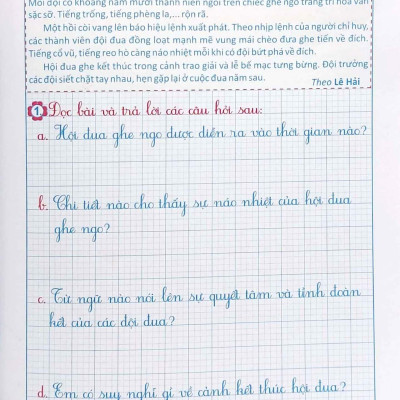 Mỗi đội có khoảng năm mươi thanh niên ngồi trên chiếc ghe ngo trang trí hoa văn
sặc sỡ. Tiếng trống, tiếng phèng la,... rộn rã.
Một hồi còi vang lên báo hiệu lệnh xuất phát. Theo nhịp lệnh của người chỉ huy,
các thành viên đội đua đồng loạt mạnh mẽ vung mái chèo đưa ghe tiến về đích.
Tiếng cổ vũ, tiếng reo hò càng náo nhiệt mỗi khi có đội bứt phá về đích.
Hội đua ghe kết thúc trong cảnh trao giải và lễ bế mạc tưng bừng. Đội trưởng
các đội siết chặt tay nhau, hẹn gặp lại ở cuộc đua năm sau.
Theo Lê Hải
1 Đọc bài và trả lời các câu hỏi sau:
a. Hội đua ghe ngo được diễn ra vào thời gian nào?
b. Chi tiết nào cho thấy sự náo nhiệt của hội đua
ghe ngo?
c. Từ ngữ nào nói lên sự quyết tâm và tinh đoàn
kết của các đội đua?
d. Em có suy nghĩ gì về cảnh kết thúc hội đua?